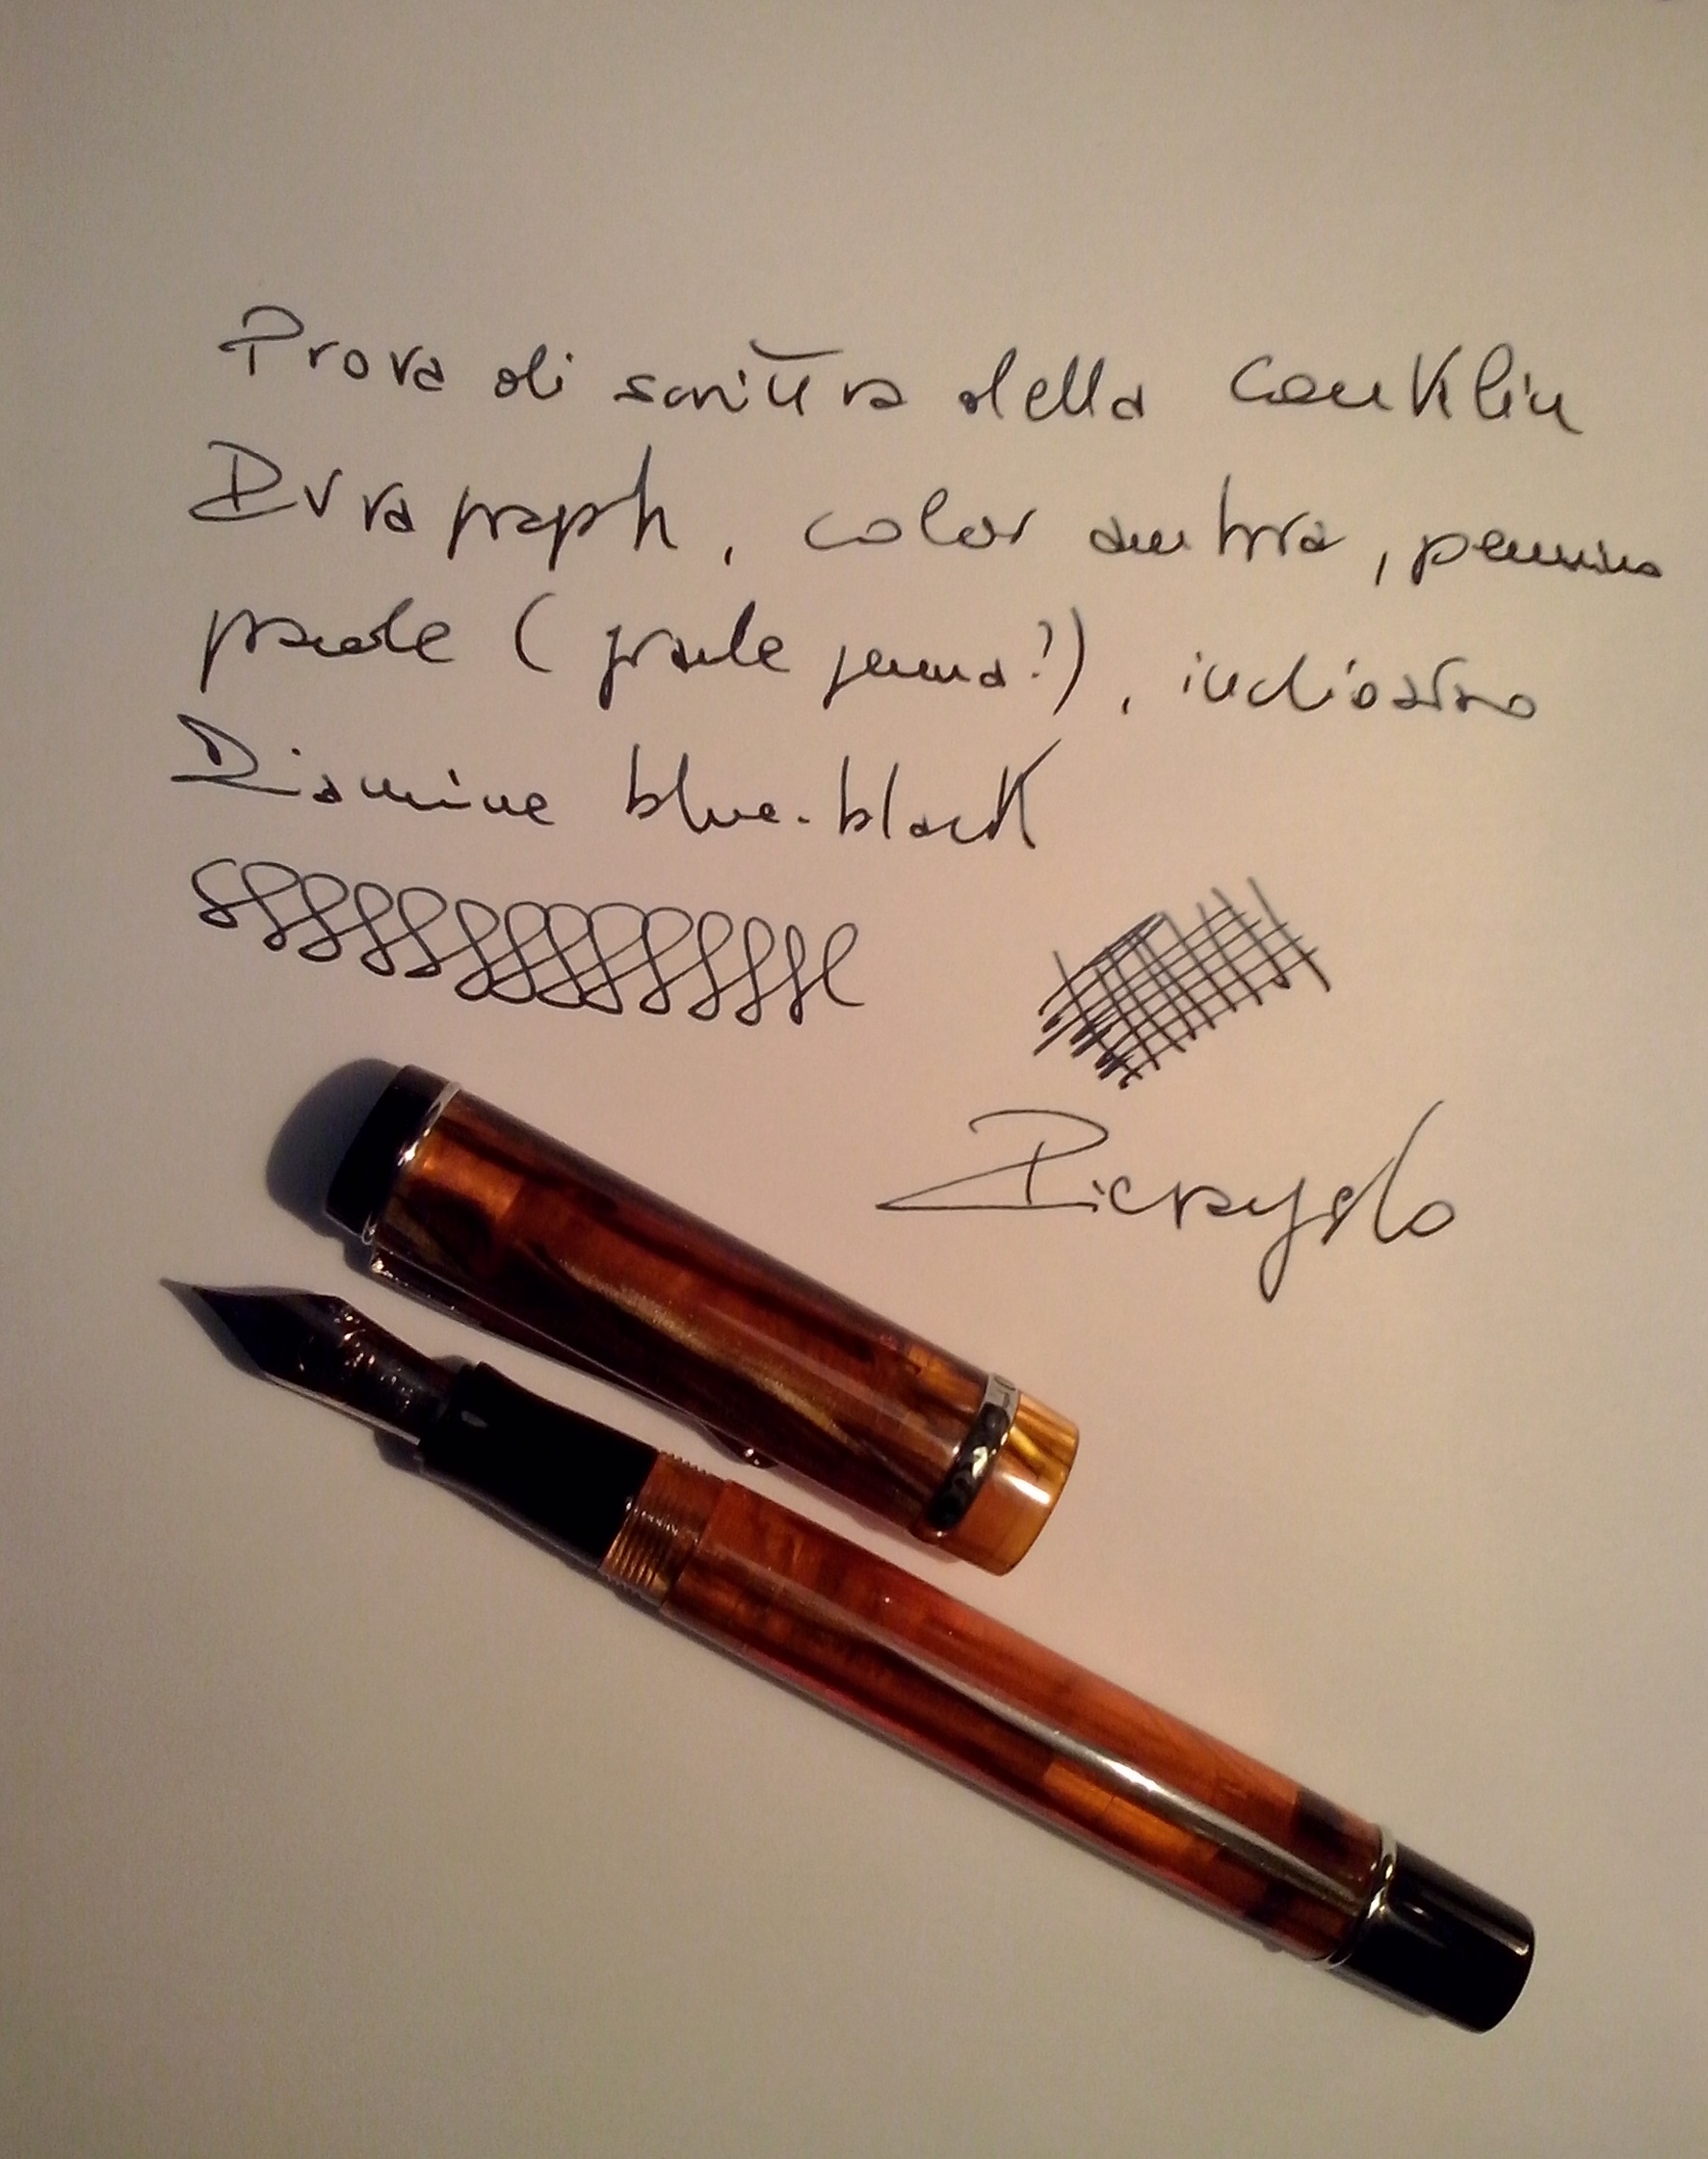 Prova di scrittura della Conklin
Duragraph, color ambra, pennino
grande (grande penna!), inchiostro
Diamine blue-black